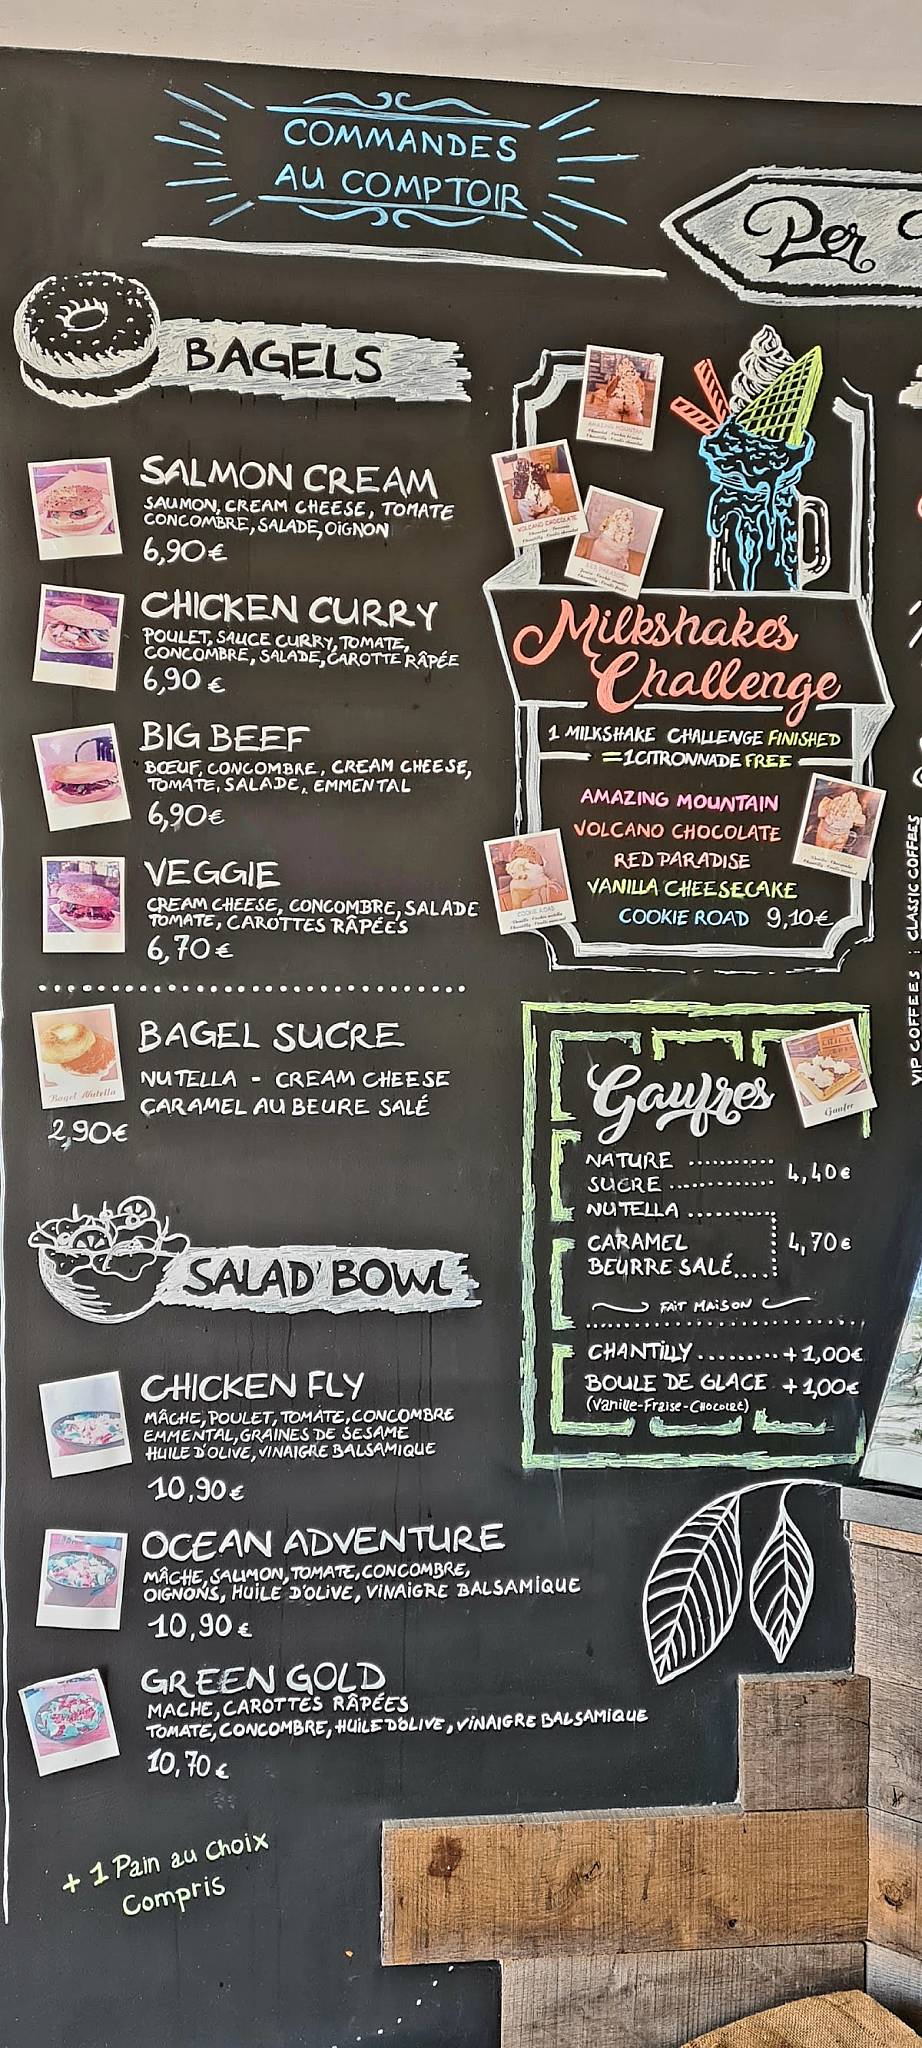 COMMANDES
AU COMPTOIR
Per
BAGELS
SALMON CREAM
SAUMON, CREAM CHEESE, TOMATE
CONCOMBRE, SALADE, OIGNON
6,90€
CHICKEN CURRY
POULET, SAUCE CURRY, TOMATE,
CONCOMBRE, SALADE, CAROTTE RÂPÉE
6,90 €
BIG BEEF
BŒUF, CONCOMBRE, CREAM CHEESE,
TOMATE, SALADE, EMMENTAL
6,90€
VEGGIE
CREAM CHEESE, CONCOMBRE, SALADE
TOMATE, CAROTTES RÂPÉES
6,70 €
Bagel Nutella
BAGEL SUCRE
NUTELLA - CREAM CHEESE
CARAMEL AU BEURE SALÉ
2,90€
SALAD'BOWL
CHICKEN FLY
MÂCHE, POULET, TOMATE, CONCOMBRE
EMMENTAL, GRAINES DE SESAME
HUILE D'OLIVE, VINAIGRE BALSAMIQUE
10,90 €
OCEAN ADVENTURE
MÂCHE, SAUMON, TOMATE, CONCOMBRE,
OIGNONS, HUILE D'OLIVE, VINAIGRE BALSAMIQUE
10,90 €
GREEN GOLD
MACHE, CAROTTES RÂPÉES
TOMATE, CONCOMBRE, HUILE D'OLIVE, VINAIGRE BALSAMIQUE
10,70 €
+ 1 Pain au Choix
Compris
AMAZING MOUNTAIN
VOLCANO CHOCOLATE
RED PARADISE
Milkshakes
Challenge
1 MILKSHAKE CHALLENGE FINISHED
=1CITRONNADE FREE
AMAZING MOUNTAIN
VOLCANO CHOCOLATE
RED PARADISE
VANILLA CHEESECAKE
COOKIE ROAD 9,10€
COOKIE ROAD
Gaufres
Gaufre
NATURE
SUCRE ............ 4,40€
NUTELLA
CARAMEL 4,70€
BEURRE SALÉ....
FAIT MAISON
CHANTILLY ......... +1,00€
BOULE DE GLACE +1,00€
(Vanille-Fraise-CHOCOLET)
VIP COFFEES : CLASSIC COFFEES